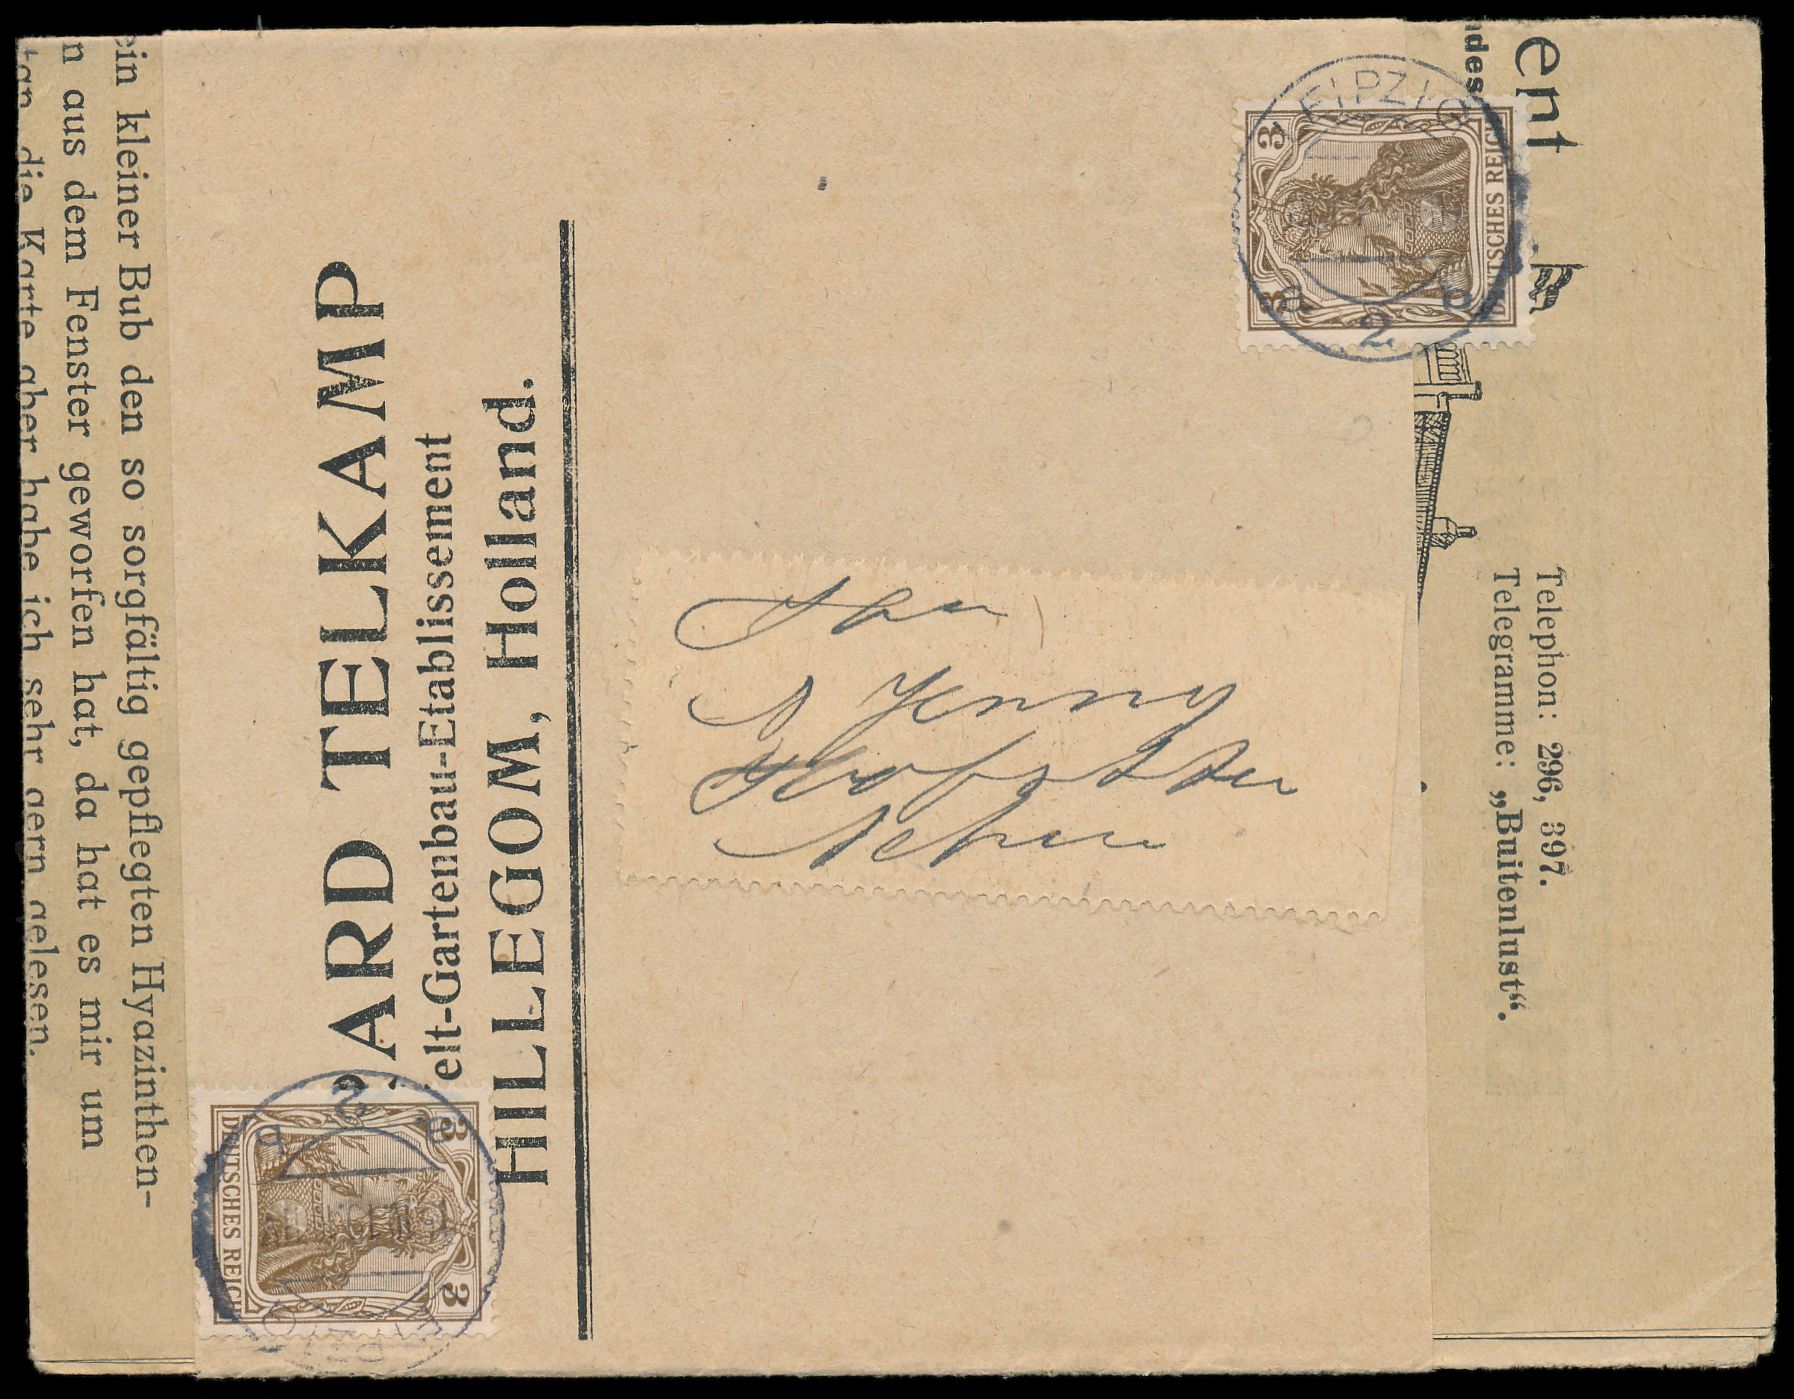 ein kleiner Bub den so sorgfältig gepflegten Hyazinthen-
n aus dem Fenster geworfen hat, da hat es mir um
die Karte aber habe ich sehr gern gelesen.
ARD TELKAMP
elt-Gartenbau-Etablissement
HILLEGOM, Holland.
Jenny
ent
ndes
Telephon: 296, 397.
Telegramme: „Buitenlust“.
LEIPZIG
2
3 3
DEUTSCHES REICH
2
3 3
DEUTSCHES REICH